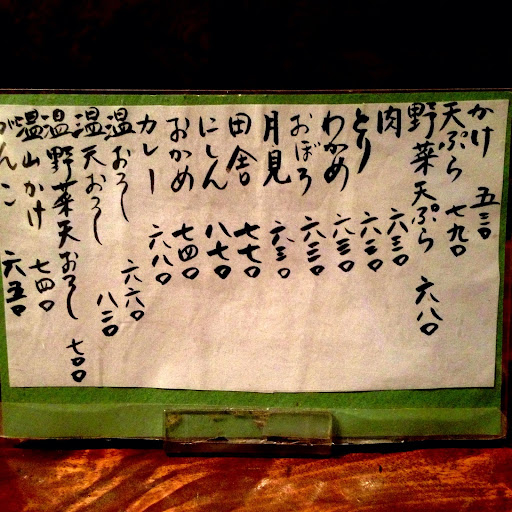 かけ 五三〇
天ぷら 七九〇
野菜天ぷら 六八〇
肉 六三〇
とり 六三〇
わかめ 六三〇
おぼろ 六三〇
月見 六三〇
田舎 七七〇
にしん 八七〇
おかめ 七四〇
カレー 六八〇
温おろし 六六〇
温天おろし 八三〇
温野菜天おろし 七〇〇
温山かけ 七四〇
がんこ 六五〇